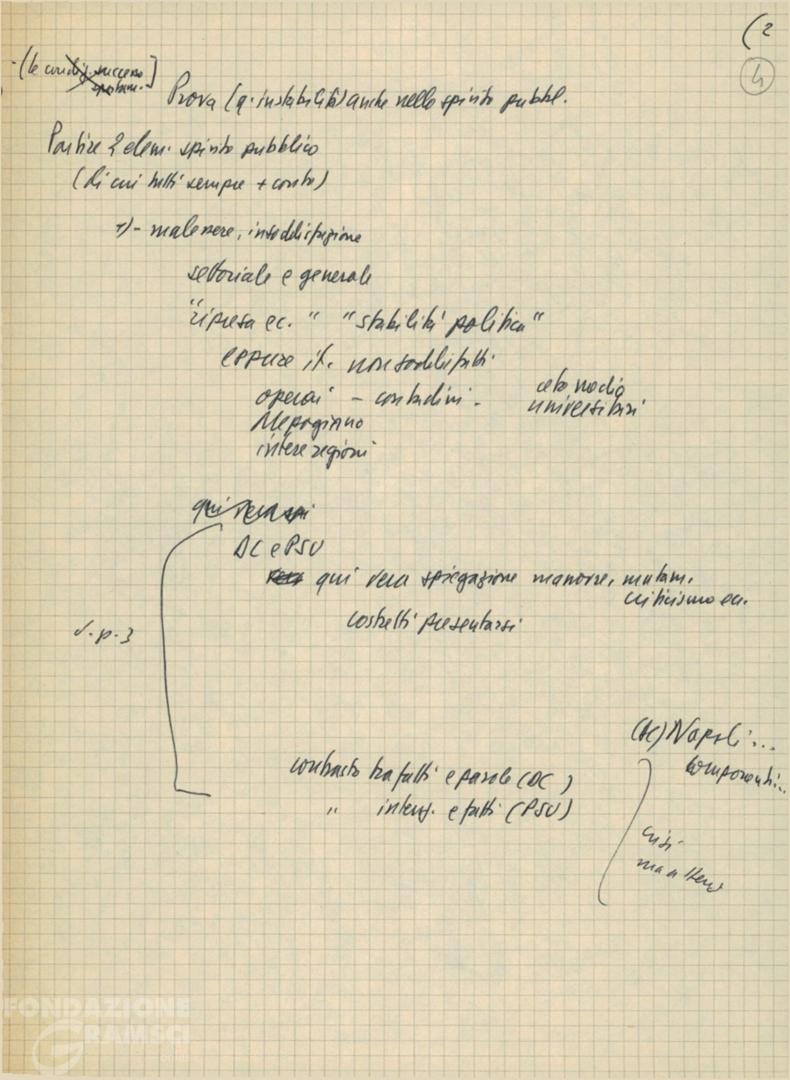 (2
4
- (le condiz. successo
Prova (q. instabilità) anche nello spirito pubbl.
Partire 2 elem. spirito pubblico
(di cui tutti sempre + conto)
1) - malessere, insoddisfazione
settoriale e generale
"ripresa ec. " "stabilità politica"
eppure it. non soddisfatti
operai - contadini - ceto medio
universitari
Mezzogiorno
intere regioni
qui vera spi
DC e PSU
qui vera spiegazione manovre, mutam.
criticismo ecc.
costretti presentarsi
v. p. 3
(DC) Napoli...
componenti...
contrasto tra fatti e parole (DC)
" intenz. e fatti (PSU)
crisi